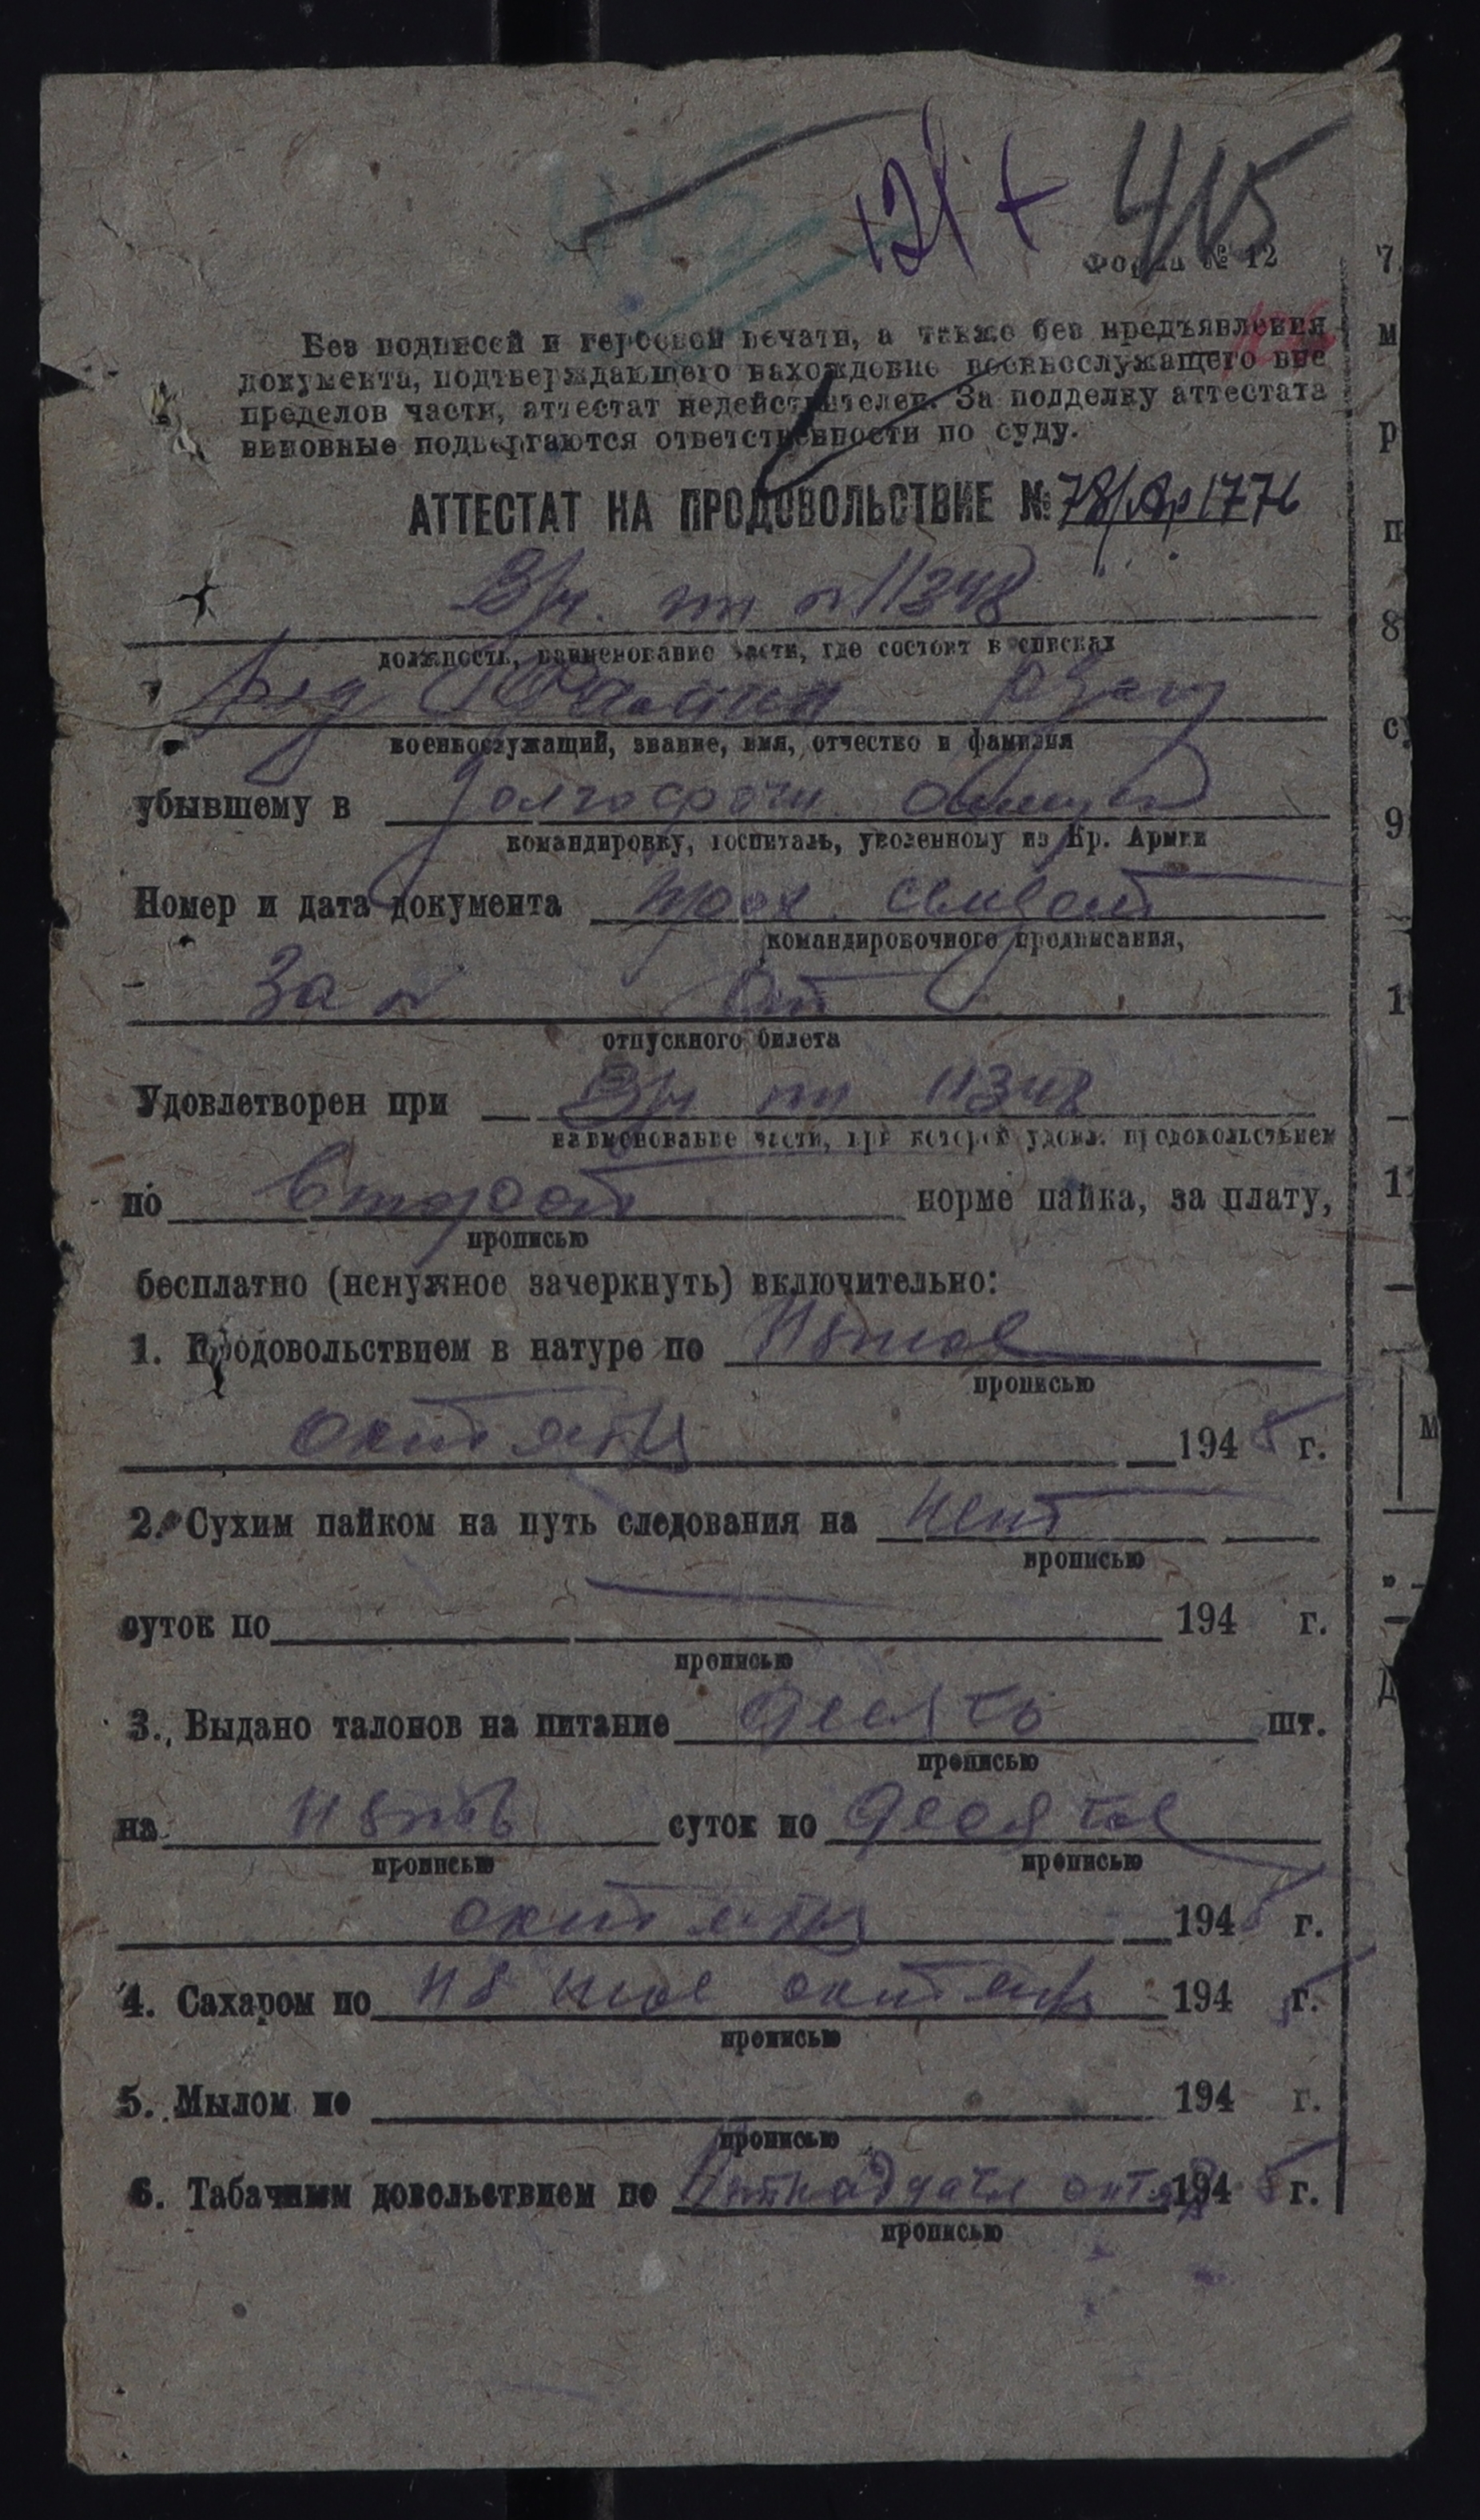 121 +
415
Форма № 12
Без подписей и гербовой печати, а также без предъявления
документа, подтверждающего нахождение военнослужащего вне
пределов части, аттестат недействителен. За подделку аттестата
виновные подвергаются ответственности по суду.
АТТЕСТАТ НА ПРОДОВОЛЬСТВИЕ № 78/
В/ч. пп № 11348
должность, наименование части, где состоит в списках
ряд
военнослужащий, звание, имя, отчество и фамилия
убывшему в долгосрочн. отпуск
командировку, госпиталь, уволенному из Кр. Армии
Номер и дата документа прод.
командировочного предписания,
За № от
отпускного билета
Удовлетворен при В/ч пп 11348
наименование части, при которой удовл. продовольствием
по второй норме пайка, за плату,
прописью
бесплатно (ненужное зачеркнуть) включительно:
1. Продовольствием в натуре по пятое
прописью
октября 1945 г.
2. Сухим пайком на путь следования на нет
прописью
суток по 194 г.
прописью
3. Выдано талонов на питание десять шт.
прописью
на пять суток по десятое
прописью прописью
октября 1945 г.
4. Сахаром по пятое октября 1945 г.
прописью
5. Мылом по 194 г.
прописью
6. Табачным довольствием по пятнадцатое октяб 1945 г.
прописью
7.
м
р
п
8
с
9
1
11
м
Д